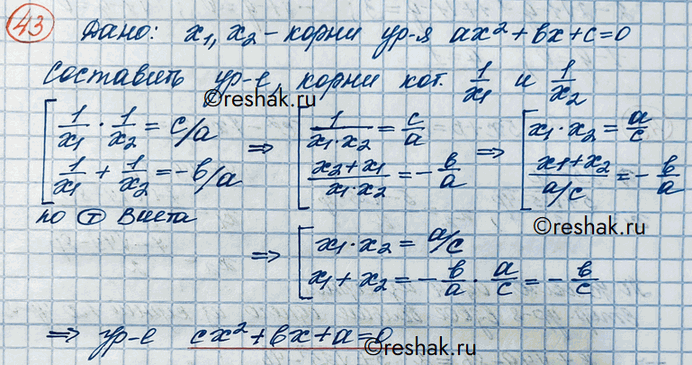 43 Дано: x₁, x₂ – корни ур-я ax²+bx+c=0
Составить ур-е, корни кот. 1/x₁ и 1/x₂
©reshak.ru
[ 1/x₁ · 1/x₂ = c/a ⇒ [ 1/(x₁·x₂) = c/a ⇒ [ x₁·x₂ = a/c
1/x₁ + 1/x₂ = -b/a (x₂+x₁)/(x₁·x₂) = -b/a (x₁+x₂)/(a/c) = -b/a
по Ⓣ Виета
©reshak.ru
⇒ [ x₁·x₂ = a/c
x₁+x₂ = -b/a · a/c = -b/c
⇒ ур-е cx²+bx+a=0
©reshak.ru